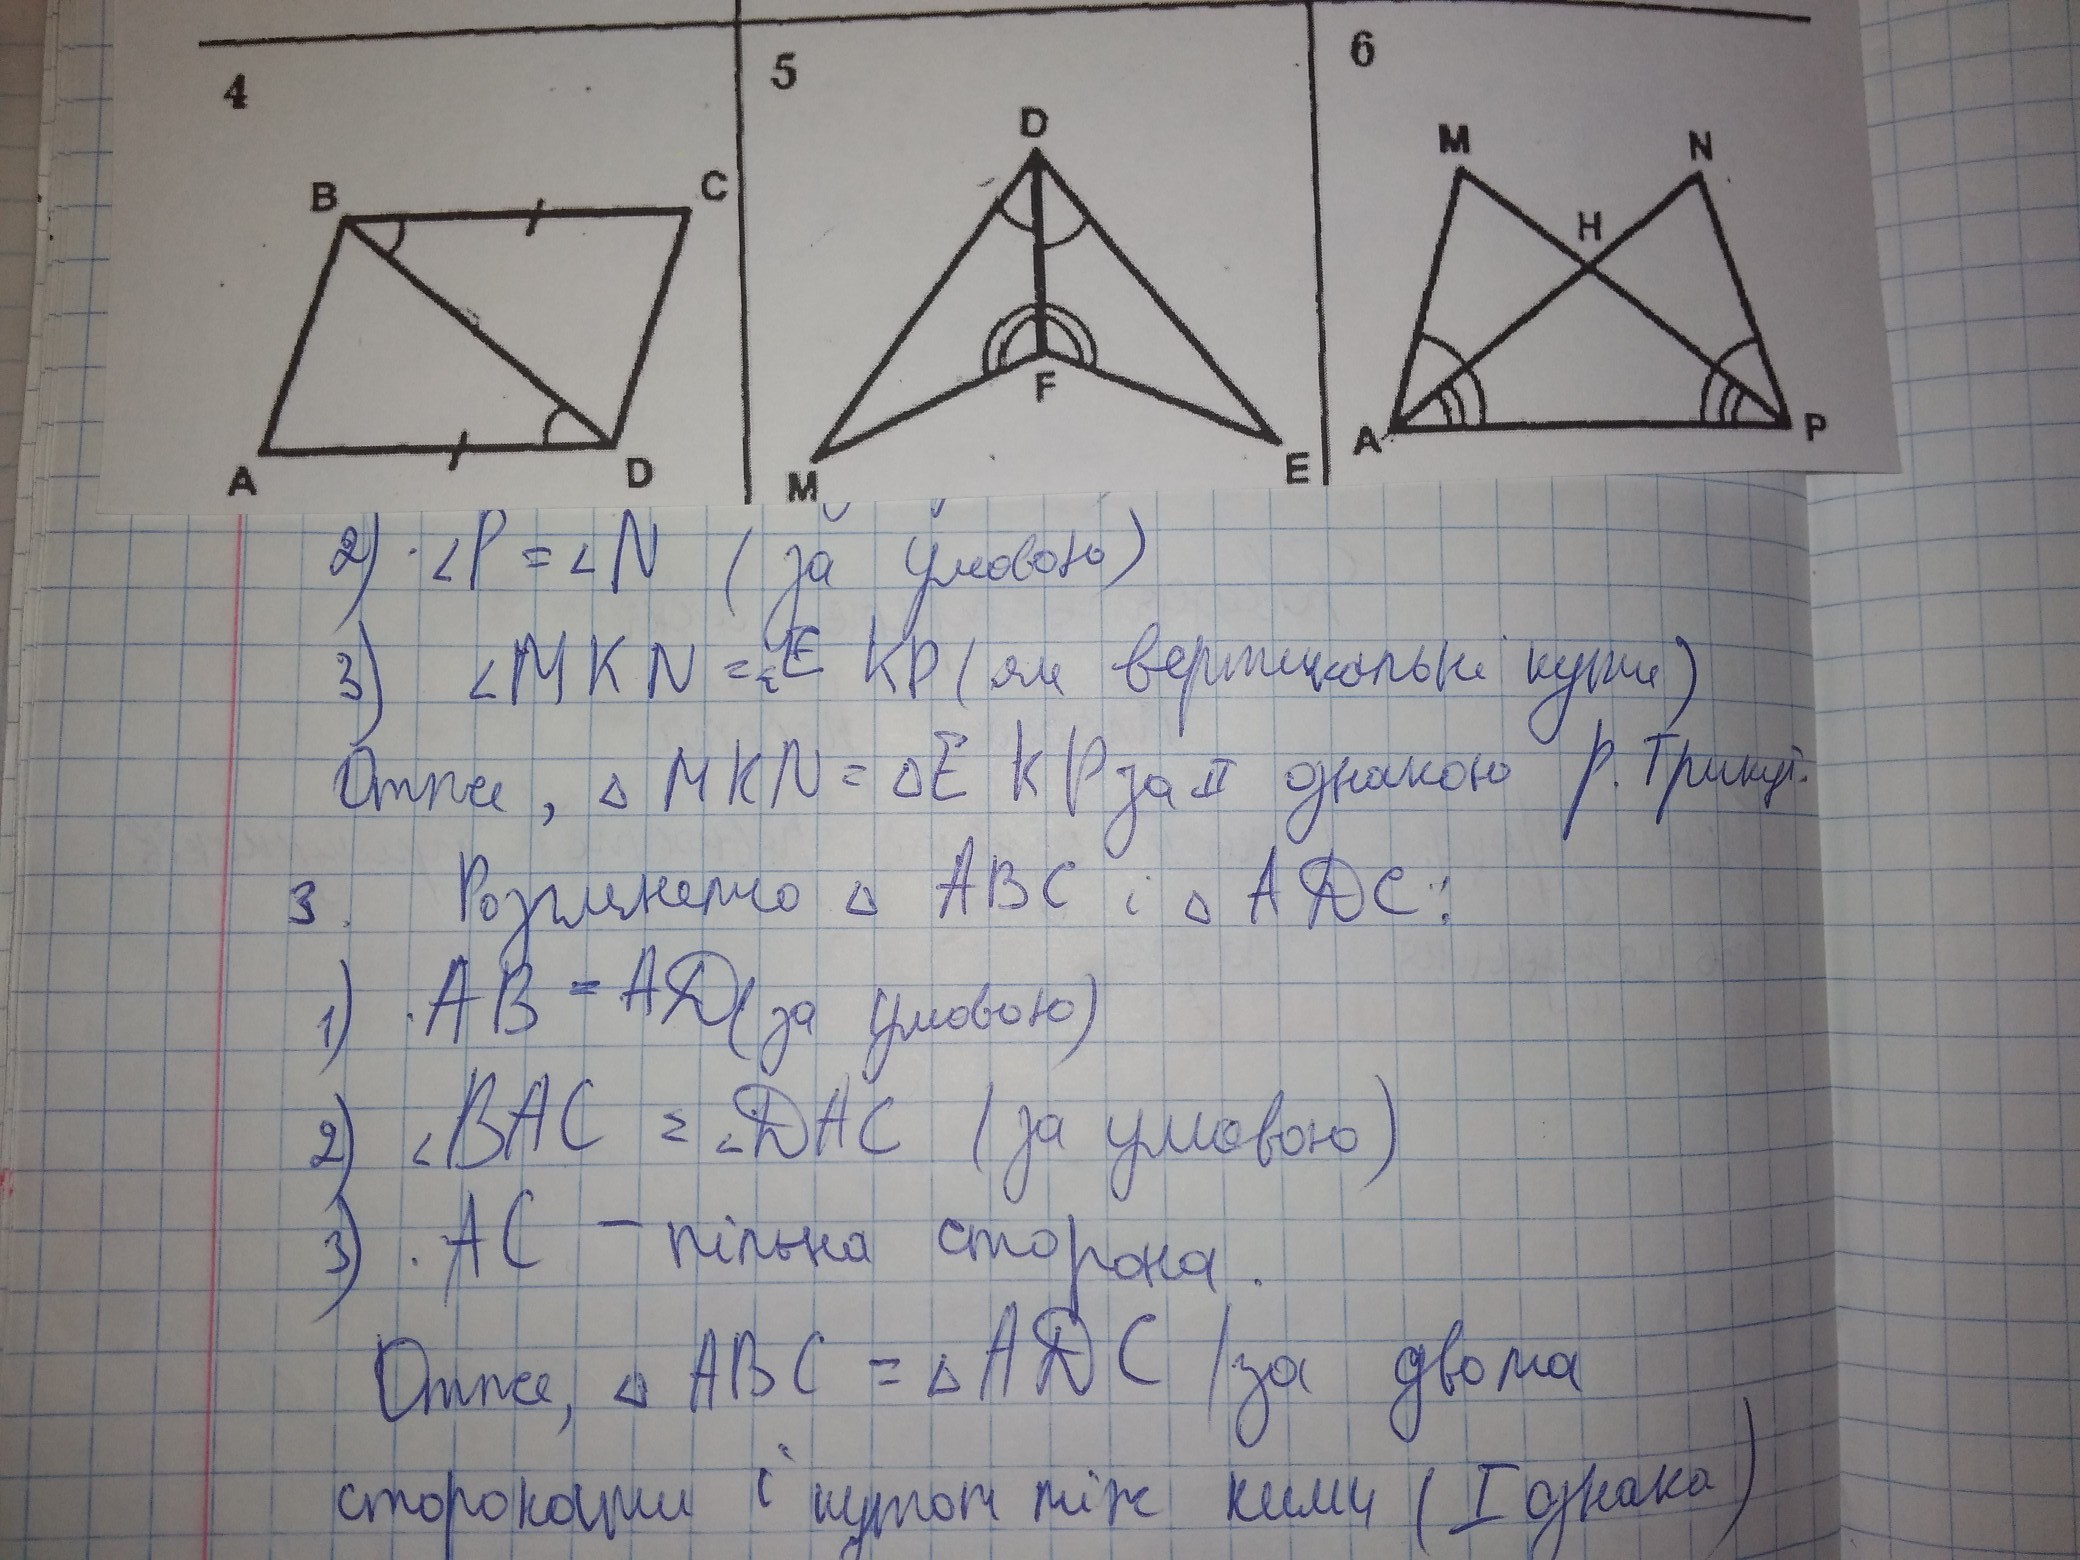 4
5
6
B
C
A
D
D
F
M
E
M
N
H
A
P
2) ∠P = ∠N (за умовою)
3) ∠MKN = ∠EKP (як вертикальні кути)
Отже, △ MKN = △EKP за II ознакою р. Трикут.
3. Розглянемо △ ABC і △ ADC:
1) AB = AD (за умовою)
2) ∠BAC = ∠DAC (за умовою)
3) AC – спільна сторона.
Отже, △ ABC = △ ADC (за двома
сторонами і кутом між ними (I ознака)